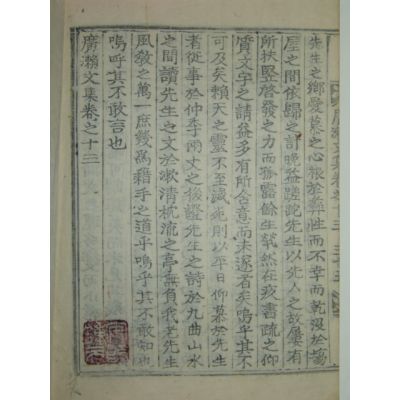 先生之鄉愛慕之心根於彛性而不幸而乾沒於塲
屋之間依歸之計晩益蹉跎先生以先人之故屢有
所扶竪啓發之力而孤露餘生煢然在疚書疏之仰
質文字之請益多有所含意而未遂者矣嗚乎其不
可及矣賴天之靈不至滅死則以平日仰慕於先生
者從事於仲季兩丈之後證先生之詩於九曲山水
之間讀先生之文於漱淸枕流之亭無負我老先生
風敎之萬一庶幾爲藉手之道乎嗚乎其不敢知也
嗚呼其不敢言也
廣瀨文集卷之十三